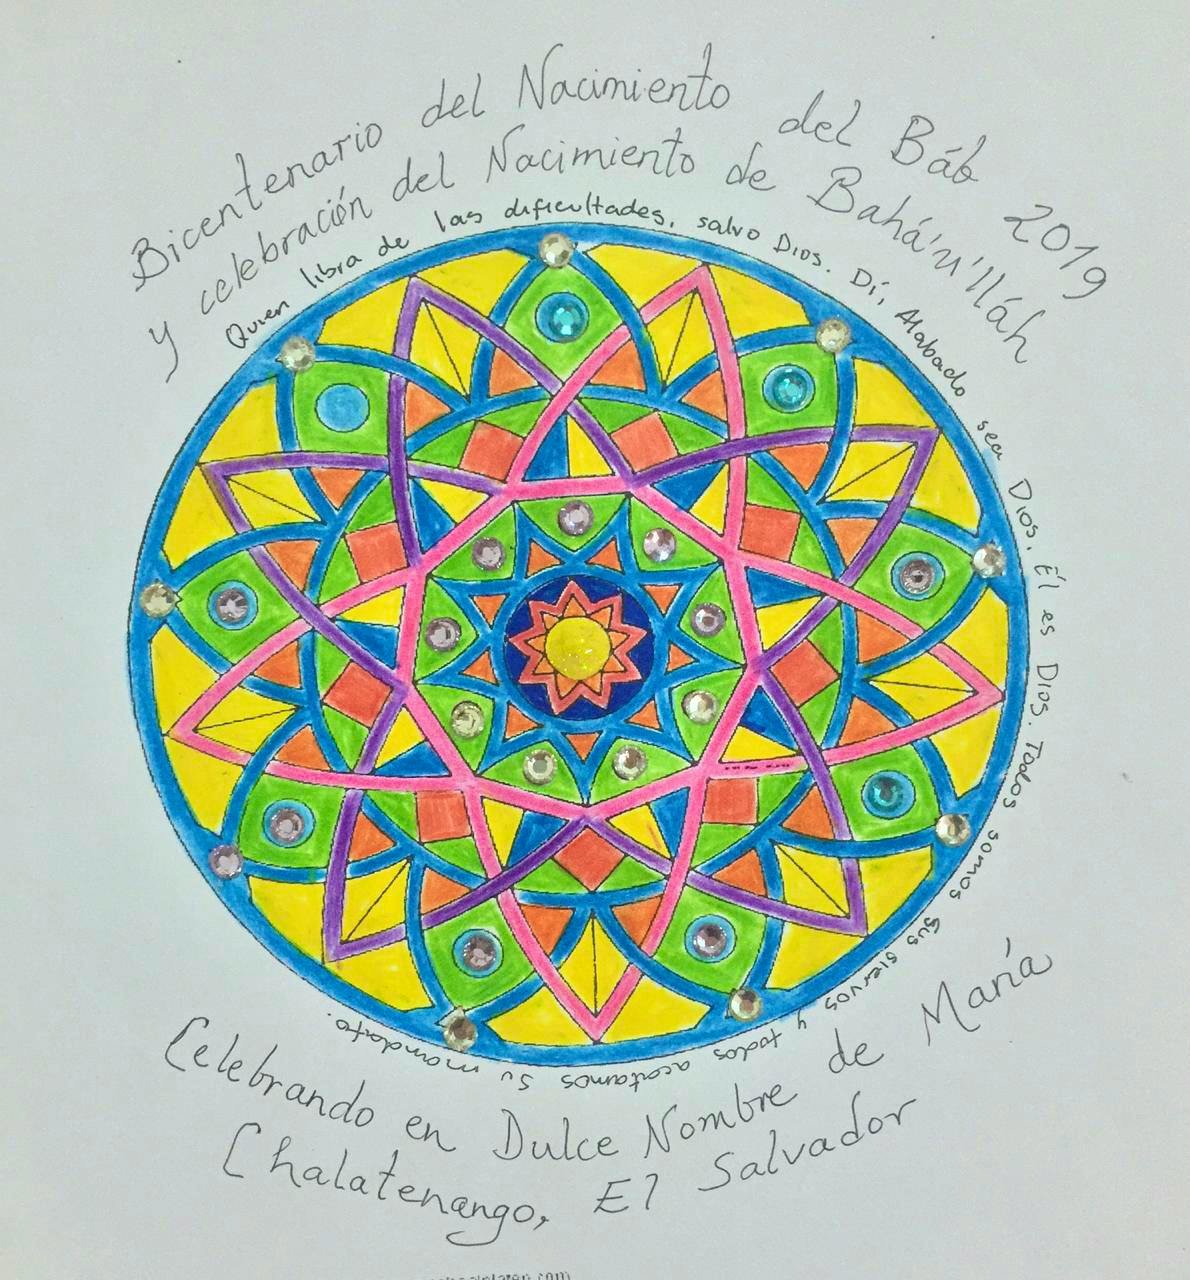 Bicentenario del Nacimiento del Báb 2019
y celebración del Nacimiento de Bahá'u'lláh
Quien libra de las dificultades, salvo Dios. Dí, Alabado sea Dios. Él es Dios. Todos somos sus siervos y todos acatamos su mandato.
Celebrando en Dulce Nombre de María
Chalatenango, El Salvador